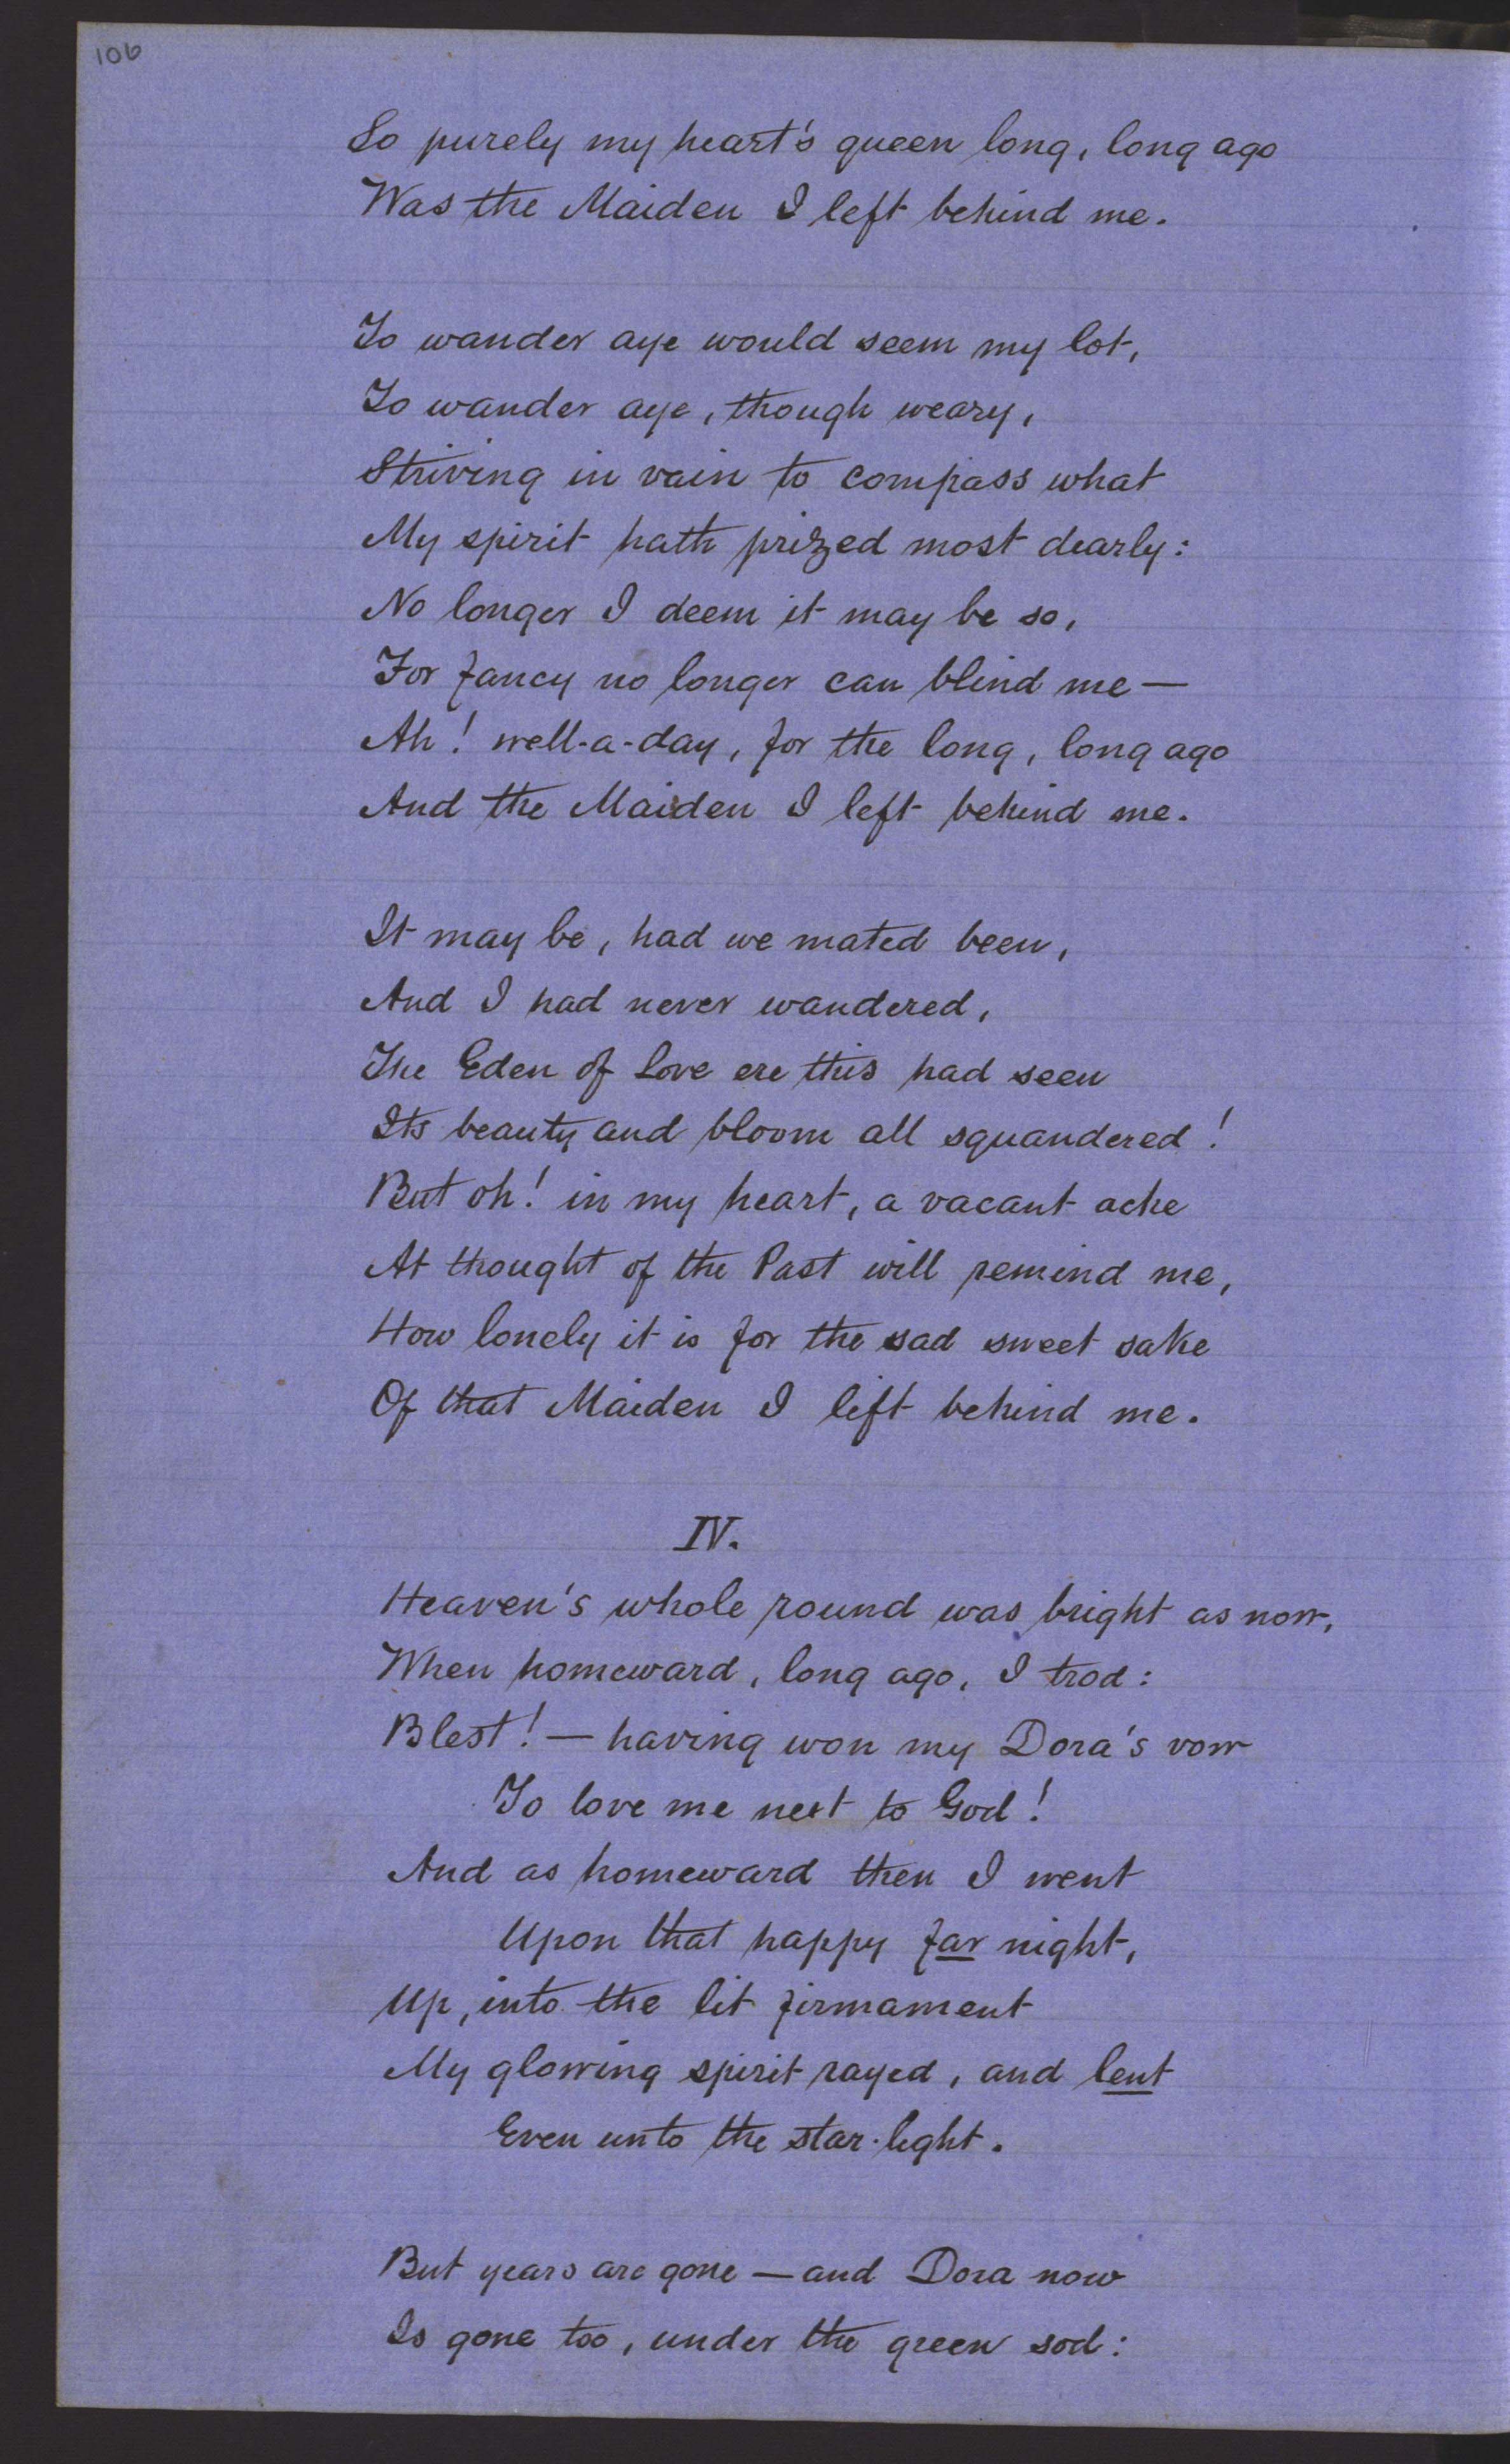 106
So purely my heart's queen long, long ago
Was the Maiden I left behind me.
To wander aye would seem my lot,
To wander aye, though weary,
Striving in vain to compass what
My spirit hath prized most dearly:
No longer I deem it may be so,
For fancy no longer can blind me—
Ah! well-a-day, for the long, long ago
And the Maiden I left behind me.
It may be, had we mated been,
And I had never wandered,
The Eden of Love ere this had seen
Its beauty and bloom all squandered!
But oh! in my heart, a vacant ache
At thought of the Past will remind me,
How lonely it is for the sad sweet sake
Of that Maiden I left behind me.
IV.
Heaven's whole round was bright as now,
When homeward, long ago, I trod:
Blest!—having won my Dora's vow
To love me next to God!
And as homeward then I went
Upon that happy far night,
Up, into the lit firmament
My glowing spirit rayed, and lent
Even unto the star-light.
But years are gone—and Dora now
Is gone too, under the green sod: